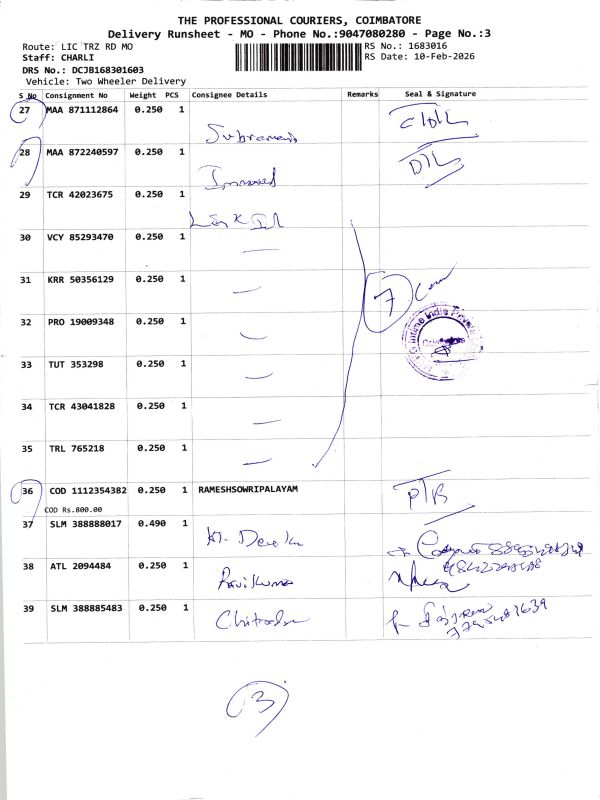 THE PROFESSIONAL COURIERS, COIMBATORE
Delivery Runsheet - MO - Phone No.:9047080280 - Page No.:3
Route: LIC TRZ RD MO
RS No.: 1683016
Staff: CHARLI
RS Date: 10-Feb-2026
DRS No.: DCJB168301603
Vehicle: Two Wheeler Delivery
S No Consignment No Weight PCS Consignee Details Remarks Seal & Signature
27 MAA 871112864 0.250 1
28 MAA 872240597 0.250 1
29 TCR 42023675 0.250 1
30 VCY 85293470 0.250 1
31 KRR 50356129 0.250 1
7
32 PRO 19009348 0.250 1
33 TUT 353298 0.250 1
34 TCR 43041828 0.250 1
35 TRL 765218 0.250 1
36 COD 1112354382 0.250 1 RAMESHSOWRIPALAYAM
COD Rs.800.00
37 SLM 388888017 0.490 1
38 ATL 2094484 0.250 1 Ravikumar
39 SLM 388885483 0.250 1
3